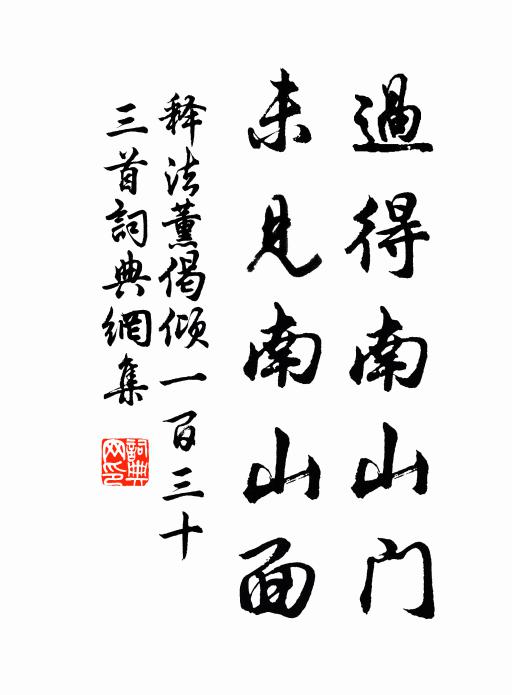 過得南山门
未見南山面
释法薰偈傾一百三十
三首詞典網集
詞典网印